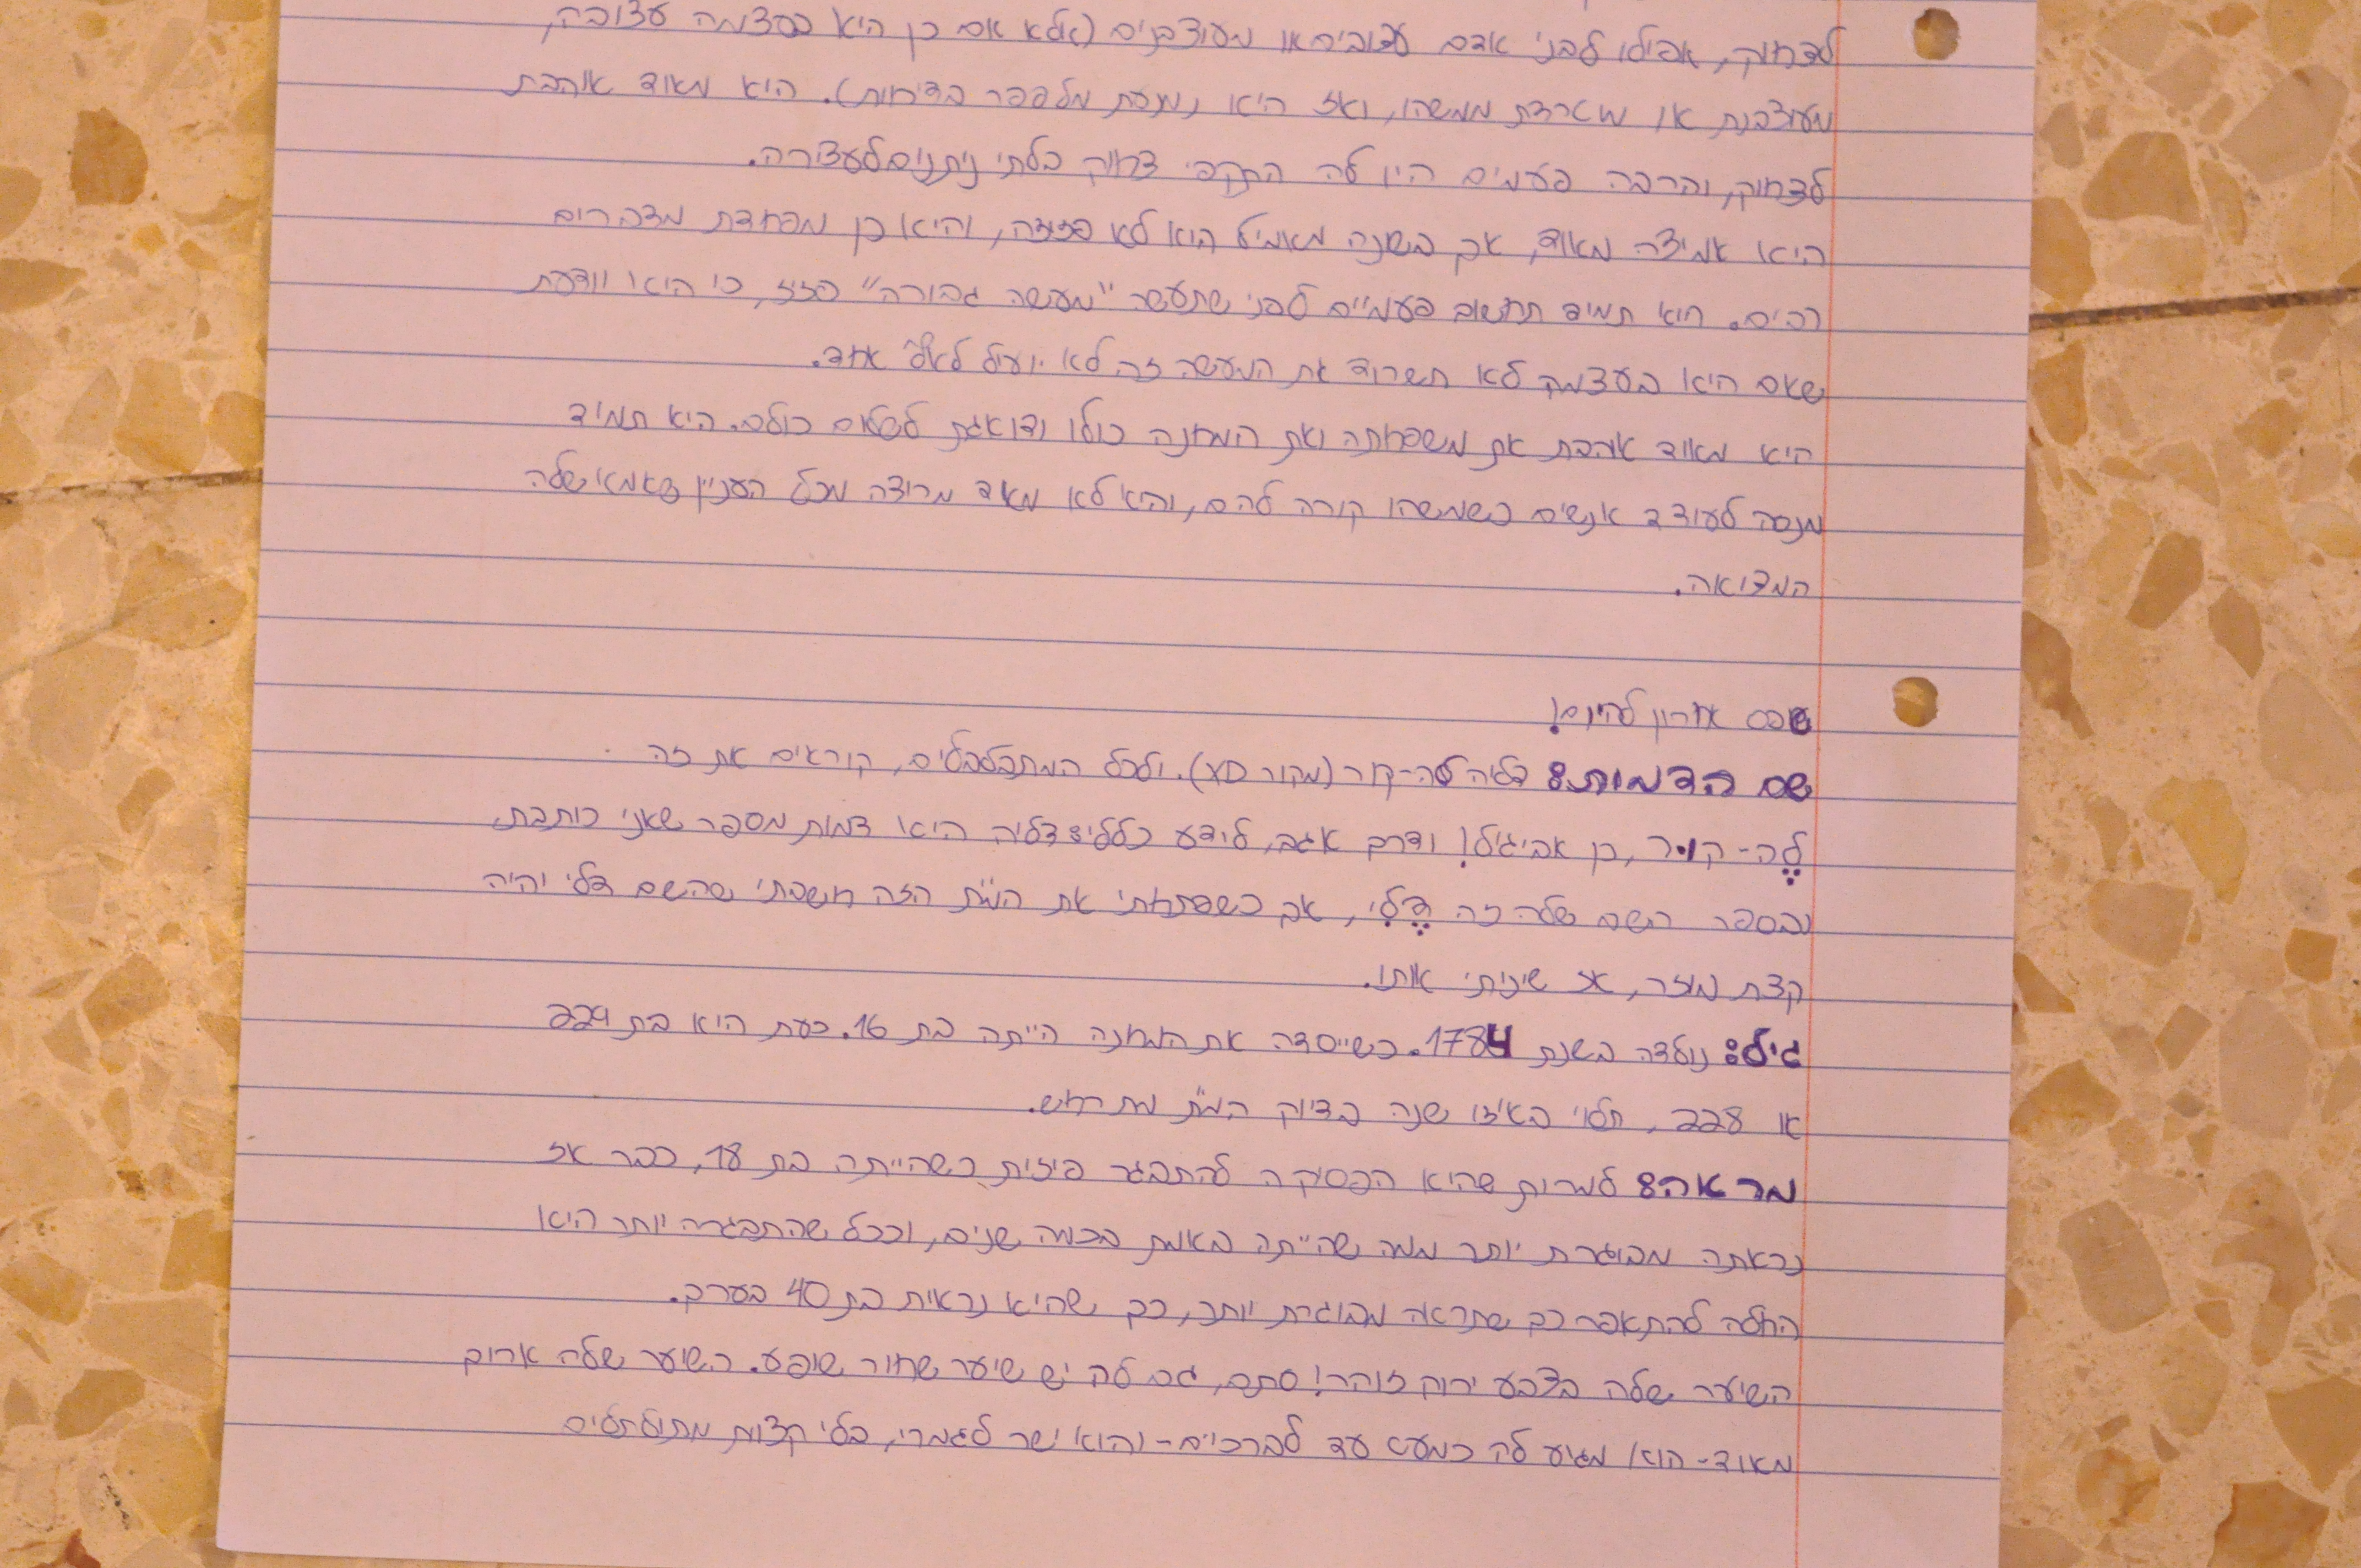 לצחוק, אפילו לבני אדם עצובים או מעוצבנים (אלא אם כן היא בעצמה עצובה,
מעוצבנת או מוטרדת ממשהו, ואז היא נמנעת מלספר בדיחות). היא מאוד אוהבת
לצחוק, והרבה פעמים היו לה התקפי צחוק בלתי ניתנים לעצירה.
היא אמיצה מאוד, אך בשונה מאמיל היא לא פזיזה, והיא כן מפחדת מדברים
רבים. היא תמיד תחשוב פעמיים לפני שתעשה "מעשה גבורה" פזיז, כי היא יודעת
שאם היא בעצמה לא תשרוד את המעשה זה לא יועיל לאף אחד.
היא מאוד אוהבת את משפחתה ואת המחנה כולו ודואגת לשלום כולם. היא תמיד
מנסה לעודד אנשים כשמשהו קורה להם, והיא לא מאוד מרוצה מכל העניין שאמא שלה
המדואה.
טופס אחרון להיום!
שם הדמות: דליה לה-קור (מקור 50). ולכל המתבלבלים, קוראים את זה
לֶה-קוּר, כן אביגיל! ודרך אגב, לידע כללי: דליה היא דמות מספר שאני כותבת,
ובספר השם שלה זה דֶלִי, אך כשפתחתי את המ"ת הזה חשבתי שהשם דלי יהיה
קצת מוזר, אז שיניתי אותו.
גיל: נולדה בשנת 1784. כשייסדה את המחנה הייתה בת 16. כעת היא בת 229
או 228, תלוי באיזו שנה בדיוק המ"ת מתרחש.
מראה: למרות שהיא הפסיקה להתבגר פיזית כשהייתה בת 18, כבר אז
נראתה מבוגרת יותר ממה שהייתה באמת בכמה שנים, וככל שהתבגרה יותר היא
החלה להתאפר כך שתראה מבוגרת יותר, כך שהיא נראית בת 40 בערך.
השיער שלה בצבע ירוק זוהר! סתם, גם לה יש שיער שחור שופע. השיער שלה ארוך
מאוד- הוא מגיע לה כמעט עד לברכיים- והוא ישר לגמרי, בלי קצוות מתולתלים